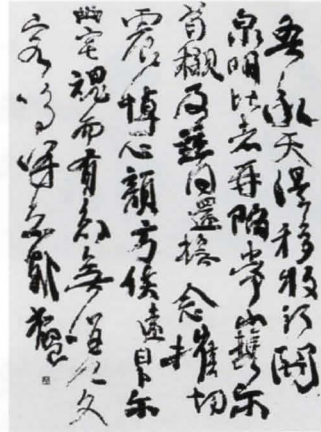 吾承天澤移牧河關
泉明比者再陷常山攜爾
首櫬及茲同還撫念摧切
震悼心顏方俟遠日卜爾
幽宅魂而有知無嗟久
客嗚呼哀哉尚饗